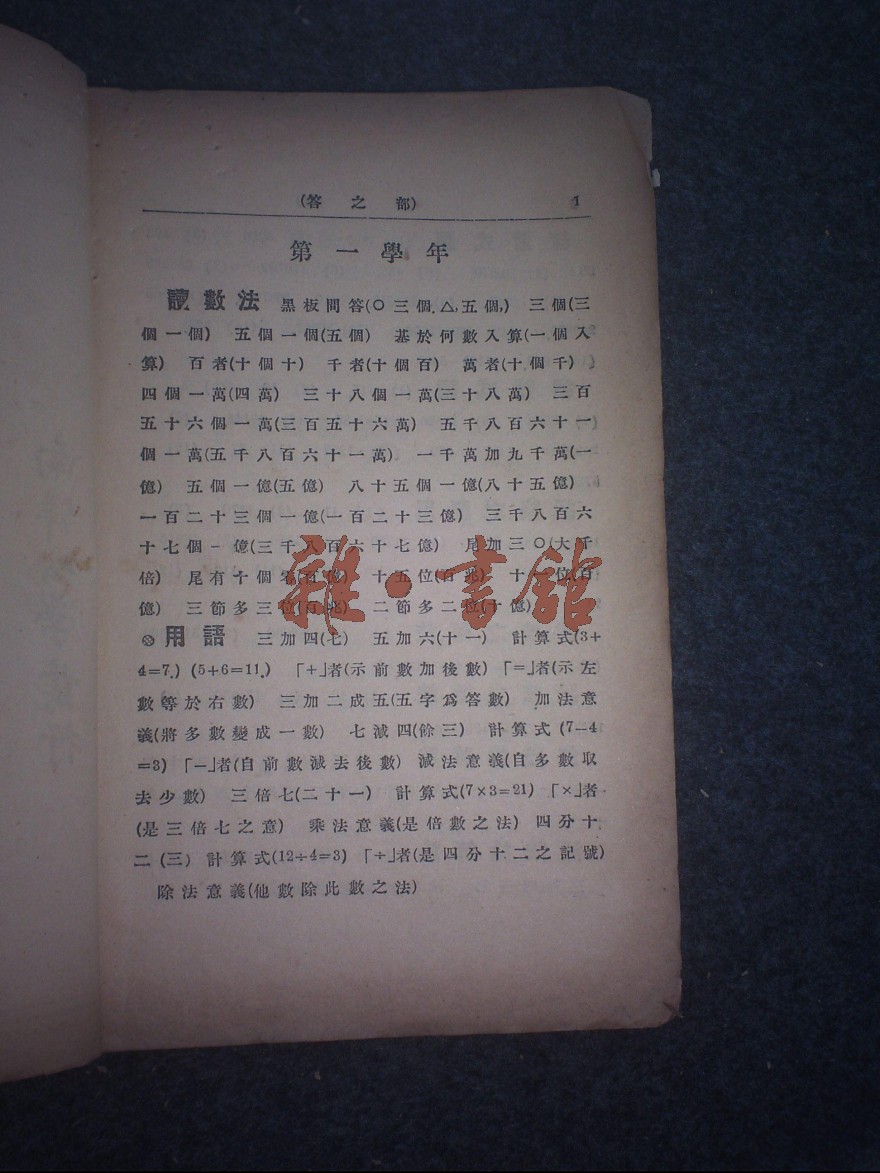 (答之部) 1
第一學年
讀數法 黑板問答(○三個.△,五個,) 三個(三
個一個) 五個一個(五個) 基於何數入算(一個入
算) 百者(十個十) 千者(十個百) 萬者(十個千)
四個一萬(四萬) 三十八個一萬(三十八萬) 三百
五十六個一萬(三百五十六萬) 五千八百六十一
個一萬(五千八百六十一萬) 一千萬加九千萬(一
億) 五個一億(五億) 八十五個一億(八十五億)
一百二十三個一億(一百二十三億) 三千八百六
十七個一億(三千八百六十七億) 尾加三○(大千
倍) 尾有十個零(百億) 十五位(百兆) 十一位(百
億) 三節多三位(百兆) 二節多二位(十億)
用語 三加四(七) 五加六(十一) 計算式(3+
4=7.) (5+6=11.) 「+」者(示前數加後數) 「=」者(示左
數等於右數) 三加二成五(五字爲答數) 加法意
義(將多數變成一數) 七減四(餘三) 計算式 (7-4
=3) 「-」者(自前數減去後數) 減法意義(自多數取
去少數) 三倍七(二十一) 計算式(7×3=21) 「×」者
(是三倍七之意) 乘法意義(是倍數之法) 四分十
二(三) 計算式(12÷4=3) 「÷」者(是四分十二之記號)
除法意義(他數除此數之法)
雜·書館